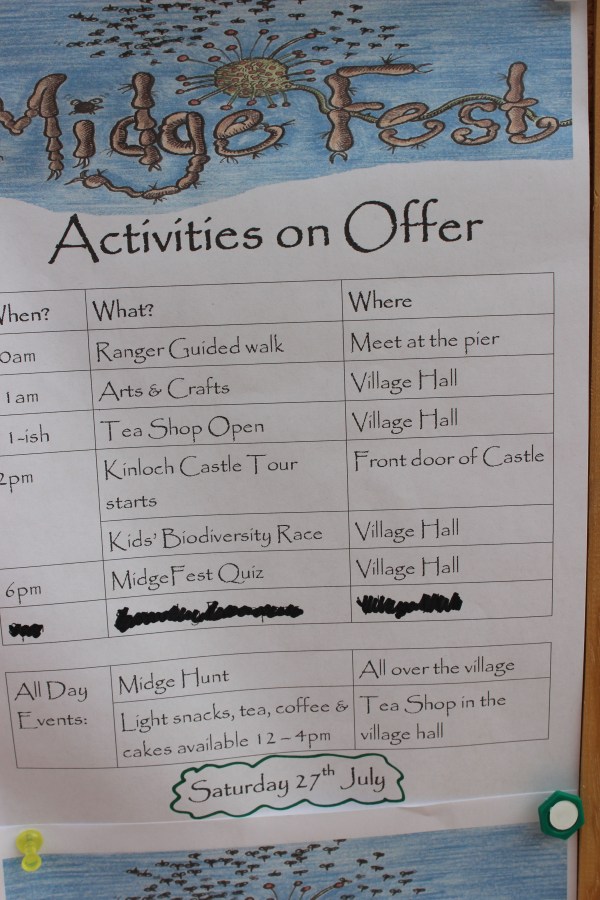 Midge Fest
Activities on Offer
When? What? Where
0am Ranger Guided walk Meet at the pier
1am Arts & Crafts Village Hall
1-ish Tea Shop Open Village Hall
2pm Kinloch Castle Tour Front door of Castle
starts
Kids' Biodiversity Race Village Hall
6pm MidgeFest Quiz Village Hall
All Day Midge Hunt All over the village
Events: Light snacks, tea, coffee & Tea Shop in the
cakes available 12 – 4pm village hall
Saturday 27th July